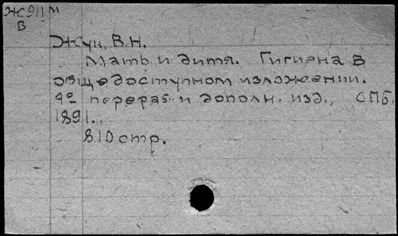 Ж 911 м
В
Жук, В.Н.
Мать и дитя. Гигиена в
общедоступном изложении.
4º перераб. и дополн. изд., СПБ.
1891.
810 стр.